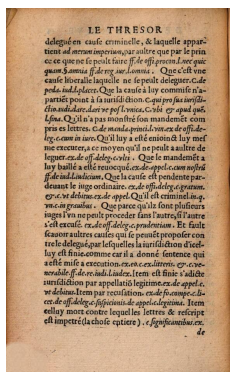 LE THRESOR
delegué en cause criminelle, & laquelle appar-
tient ad merum imperium, par autre que par le prin
ce ce que ne se peult faire ff. de offi. procon. l. nec quic
quam. §. omnia ff. de reg. iur. l. omnia. Que c'est vne
cause liberalle laquelle ne se peult deleguer. C. de
peda. iudi. l. placet. Que la cause à luy commise n'a-
partiēt point à sa iurisdiction. C. qui pro sua iurisdi-
ction. iudi. dare. dari ve pos. l. vnica. C. vbi & apud quē.
l. fina. Qu'il n'a pas monstré son mandemēt com
pris es lettres. C. de manda. princi. l. vni. ex. de offi. de-
leg. c. cum in iure. Qu'il luy a esté enioinct luy mes-
me executer, a ce moyen qu'il ne peult a aultre de
leguer. ex. de off. deleg. c. vlti. Que le mandemēt a
luy baillé a esté reuocqué. ex. de appel. c. cum
ff. de iud. l. iudicium. Que la cause est pendente par-
deuant le iuge ordinaire. ex. de offi. deleg. c. gratum.
& c. vt debitus. ex. de appel. Qu'il est criminel. in. q.
vn. c. in grauibus. Que parce qu'ilz sont plusieurs
iuges l'vn ne peult proceder sans l'autre, si l'autre
s'est excusé. ex. de off. deleg. c. prudentiam. Et fault
scauoir aultres causes qui se peuuēt proposer con
tre le delegué, par lesquelles la iurisdiction d'icel-
luy est finie. comme car il a donné sentence qui
a esté mise a execution. ex. eo. c. ex litteris. & c. ve-
nerabile. ff. de re. iudi. l. iudex. Item est finie s'adicte
iurisdiction par appellatiō legitime. ex. de appel. c.
vt debitus. Item par recusation. ex. de fo. compe. c. li-
cet. de off. deleg. c. suspicionis. de appel. c. legitima. Item
celluy mort contre lequel les lettres & rescript
est impetré (la chose entiere). c. significantibus. ex.
de